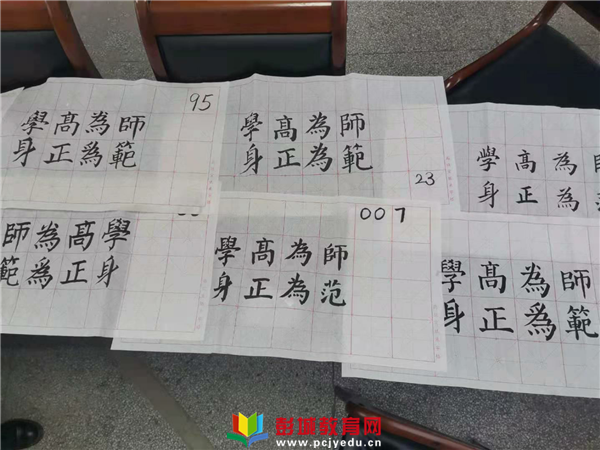 95
學高為師
身正爲範
學高為師
身正為範
23
學高為
身正為
師為高學
範爲正身
007
學高為師
身正為范
學高為師
身正爲範
彭城教育网
www.pcjyedu.cn